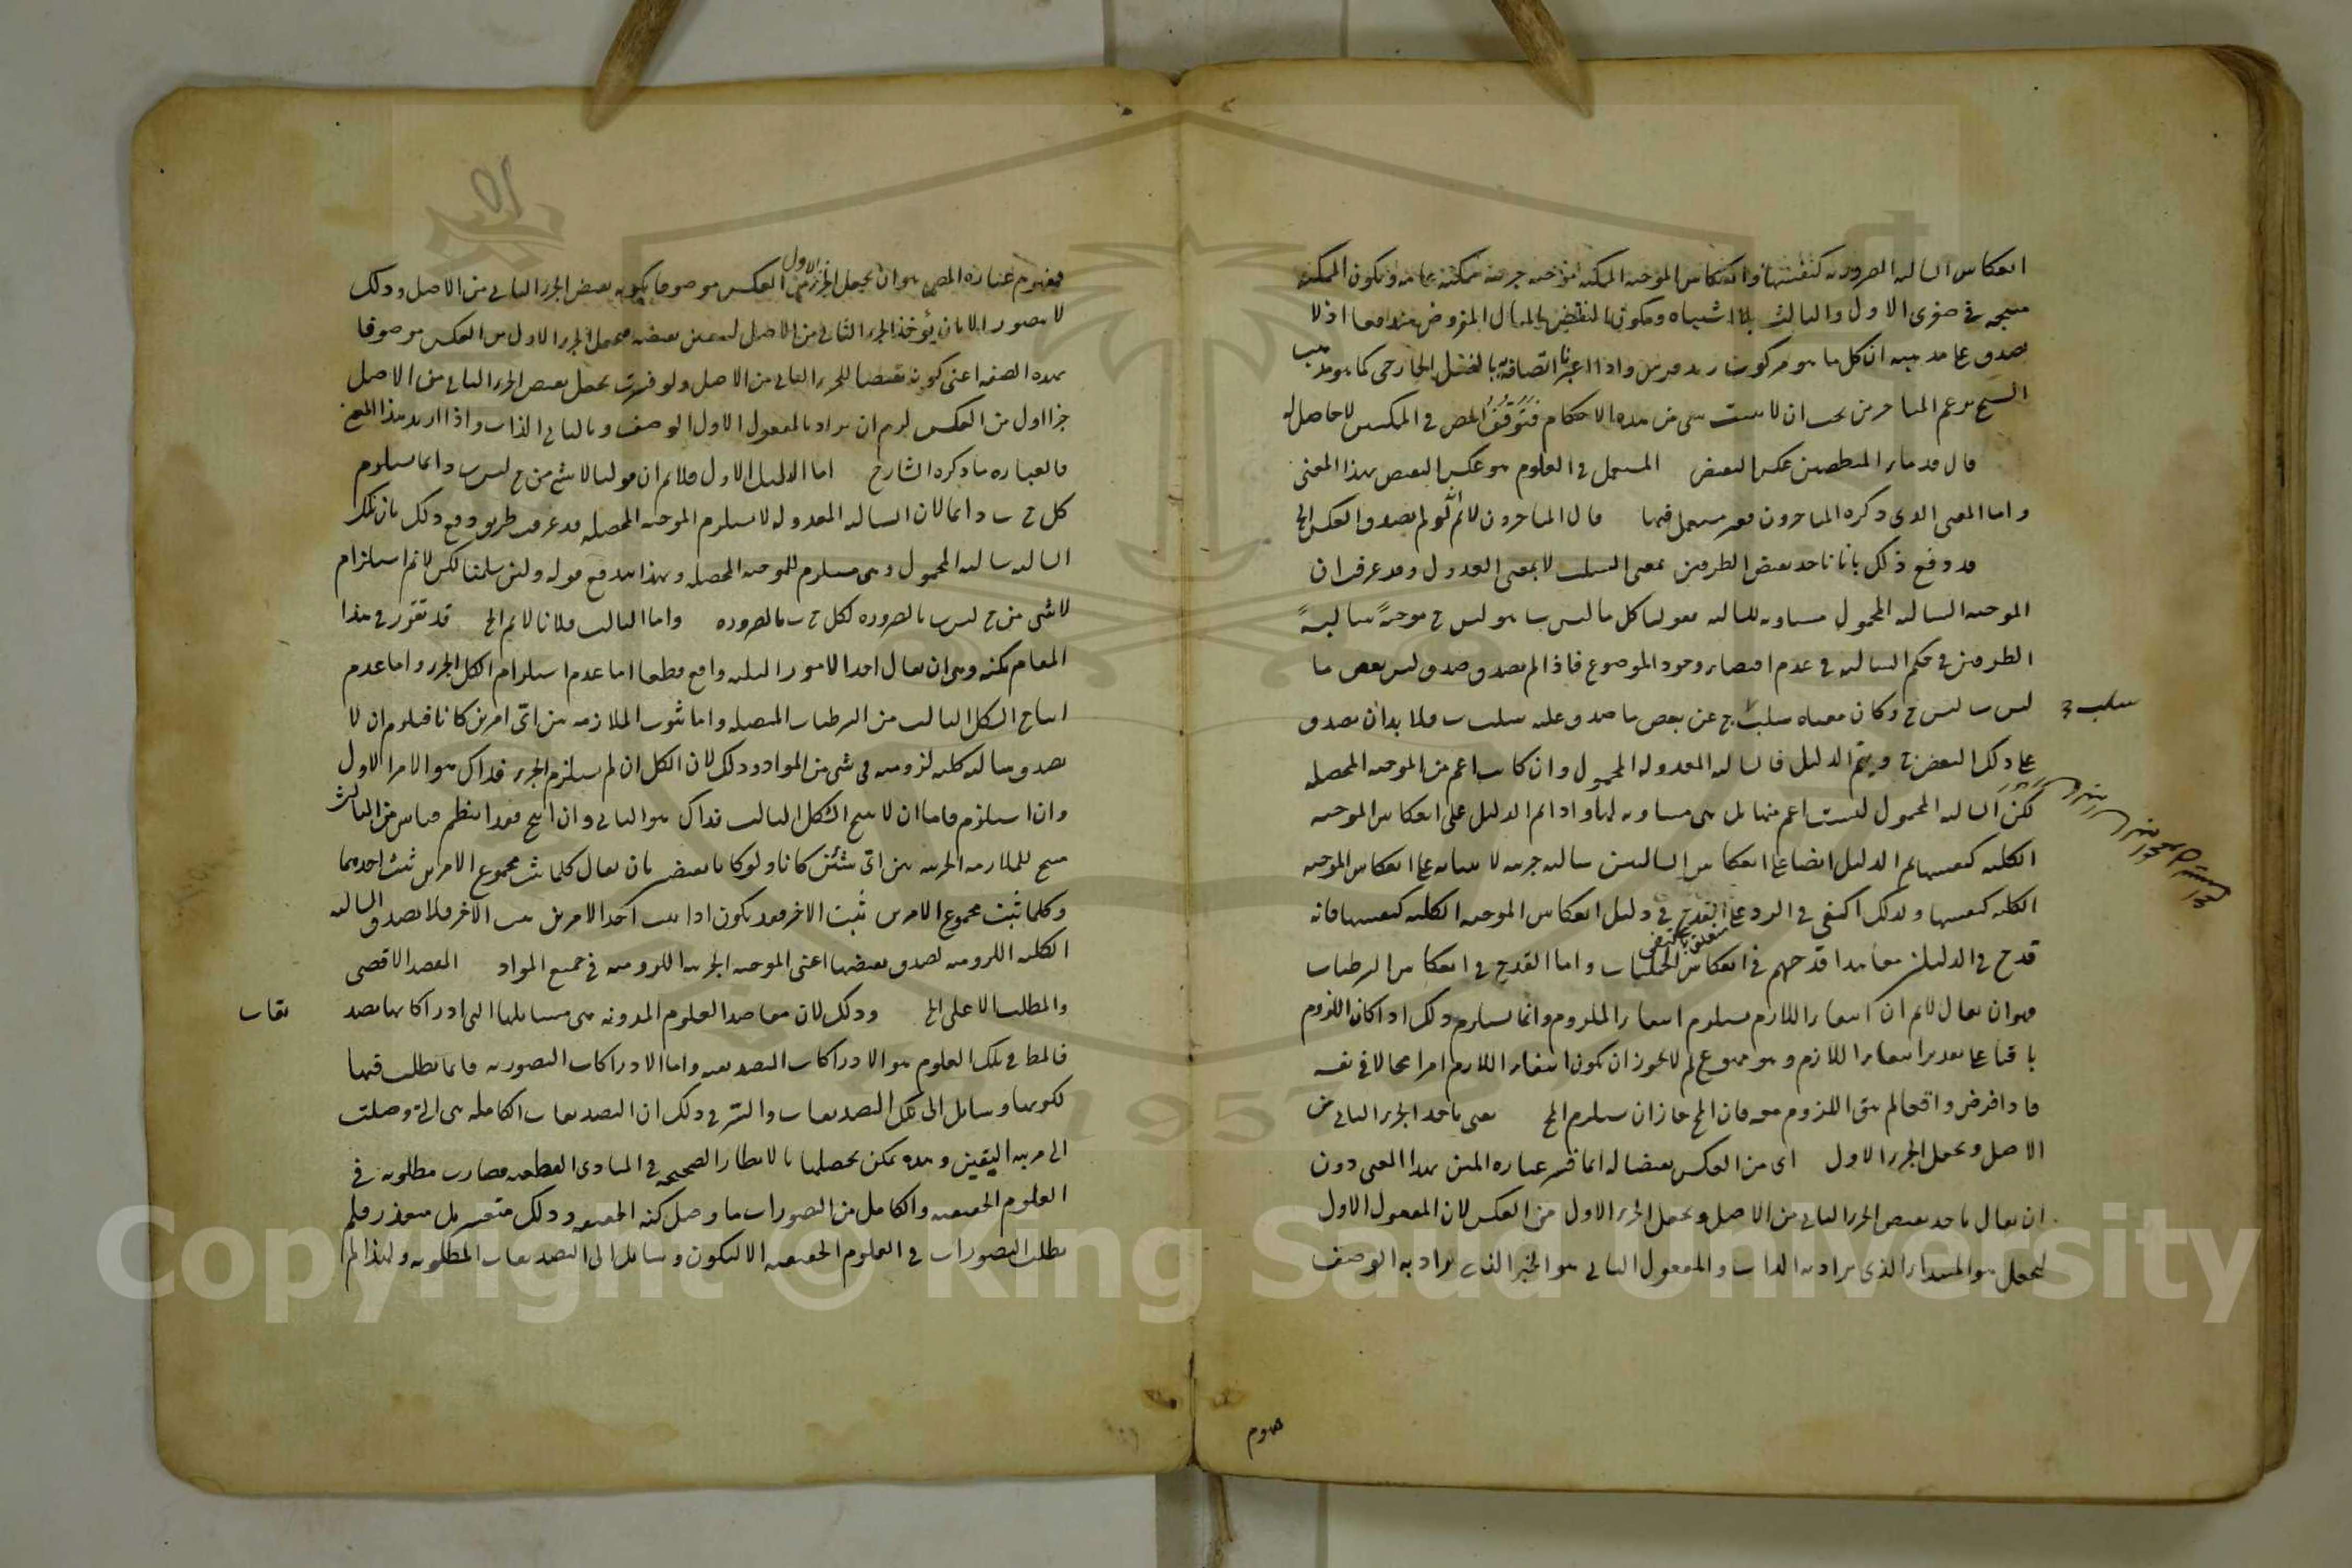 انعكاس السالبة الضرورية كنفسها وانعكاس الموجبة الممكنة موجبة جزئية ممكنة عامة وتكون الممكنة
منتجة في صغرى الاول والثالث بلا اشتباه ويكون النقض بالمثال المفروض مندفعا اذ لا
يصدق على مذهبه ان كل ما هو مركوب زيد فرس واذا اعتبرنا اتصافه بالفعل الخارجي كما هو مذهب
الشيخ بزعم المتأخرين يجب ان لا يثبت شيء من هذه الاحكام فتوقف المص في العكس لا حاصل له
قال قدماء المنطقيين عكس النقيض المستعمل في العلوم هو عكس النقيض بهذا المعنى
واما المعنى الذي ذكره المتأخرون فغير مستعمل فيها قال المتأخرون لا نم انه لو لم يصدق العكس الخ
قد دفع ذلك بانا نأخذ نقيض الطرفين بمعنى السلب لا بمعنى العدول وقد عرفت ان
الموجبة السالبة المحمول مساوية للسالبة فقولنا كل ما ليس ب هو ليس ج موجبة سالبة
الطرفين في حكم السالبة في عدم اقتضاء وجود الموضوع فاذا لم يصدق صدق ليس بعض ما
ليس ب ليس ج وكان معناه سلب سلب ج عن بعض ما صدق عليه سلب ب فلا بد ان يصدق
على ذلك البعض ج ويتم الدليل فالسالبة المعدولة المحمول وان كانت اعم من الموجبة المحصلة
لكن السالبة المحمول ليست اعم منها بل هي مساوية لها واذا تم الدليل على انعكاس الموجبة
الكلية كنفسها تم الدليل ايضا على انعكاس السالبتين سالبة جزئية لابتنائه على انعكاس الموجبة
الكلية كنفسها ولذلك اكتفى في الرد على القدح في دليل انعكاس الموجبة الكلية كنفسها فانه
متعلق باكتفى
قدح في الدليلين معا هذا قدحهم في انعكاس الحمليات واما القدح في انعكاس الشرطيات
فهو ان يقال لا نم ان انتفاء اللازم يستلزم انتفاء الملزوم وانما يستلزم ذلك اذا كان اللزوم
باقيا على تقدير انتفاء اللازم وهو ممنوع لم لا يجوز ان يكون انتفاء اللازم امرا محالا في نفسه
فاذا فرض واقعا لم يبق اللزوم معه فان المح جاز ان يستلزم المح يعني نأخذ الجزء الثاني من
الاصل ونجعل الجزء الاول اي من العكس نقيضا له انما فسر عبارة المتن بهذا المعنى دون
ان يقال نأخذ نقيض الجزء الثاني من الاصل ونجعل الجزء الاول من العكس لان المفعول الاول
لنجعل هو المبتدأ الذي يراد به الذات والمفعول الثاني هو الخبر الذي يراد به الوصف
مفهوم
فمفهوم عبارة المص هو ان يجعل الجزء الاول من العكس موصوفا بكونه نقيض الجزء الثاني من الاصل وذلك
لا يتصور الا بان يؤخذ الجزء الثاني من الاصل ليتعين نقيضه فيجعل الجزء الاول من العكس موصوفا
بهذه الصفة اعني كونه نقيضا للجزء الثاني من الاصل ولو فسرت بجعل نقيض الجزء الثاني من الاصل
جزءا اول من العكس لزم ان يراد بالمفعول الاول الوصف وبالثاني الذات واذا اريد هذا المعنى
فالعبارة ما ذكره الشارح اما الدليل الاول فلا نم ان قولنا لا شيء من ج ليس ب دائما يستلزم
كل ج ب دائما لان السالبة المعدولة لا يستلزم الموجبة المحصلة قد عرفت طريق دفع ذلك بان تلك
السالبة سالبة المحمول وهي مستلزم للموجبة المحصلة وبهذا يندفع قوله ولئن سلمنا لكن لا نم استلزام
لا شيء من ج ليس ب بالضرورة لكل ج ب بالضرورة واما الثالث فلانا لا نم الخ قد تقرر في هذا
المقام نكتة وهي ان يقال احد الامور الثلثة واقع قطعا اما عدم استلزام الكل الجزء واما عدم
انتاج الشكل الثالث من الشرطيات المتصلة واما ثبوت الملازمة بين اي امرين كانا فيلزم ان لا
يصدق سالبة كلية لزومية في شيء من المواد وذلك لان الكل ان لم يستلزم الجزء فذاك هو الامر الاول
وان استلزم فاما ان لا ينتج الشكل الثالث فذاك هو الثاني وان انتج فقد انتظم قياس من الثالث
منتج للملازمة الجزئية بين اي شيئين كانا ولو كانا نقيضين بان يقال كلما ثبت مجموع الامرين ثبت احدهما
وكلما ثبت مجموع الامرين ثبت الاخر فقد يكون اذا ثبت احد الامرين ثبت الاخر فلا يصدق السالبة
الكلية اللزومية لصدق نقيضها اعني الموجبة الجزئية اللزومية في جميع المواد المقصد الاقصى
والمطلب الاعلى الخ وذلك لان مقاصد العلوم المدونة هي مسائلها التي ادراكاتها تصد
يقات
فالمط في تلك العلوم هو الادراكات التصديقية واما الادراكات التصورية فانما تطلب فيها
لكونها وسائل الى تلك التصديقات والسر في ذلك ان التصديقات الكاملة هي التي وصلت
الى مرتبة اليقين وهذه يمكن تحصيلها بالانظار الصحيحة في المبادي القطعية فصارت مطلوبة في
العلوم الحقيقية والكامل من التصورات ما وصل كنه الحقيقة وذلك متعسر بل متعذر فلم
يطلب التصورات في العلوم الحقيقية الا لتكون وسائل الى التصديقات المطلوبة ولهذا لم
Copyright © King Saud University
1957